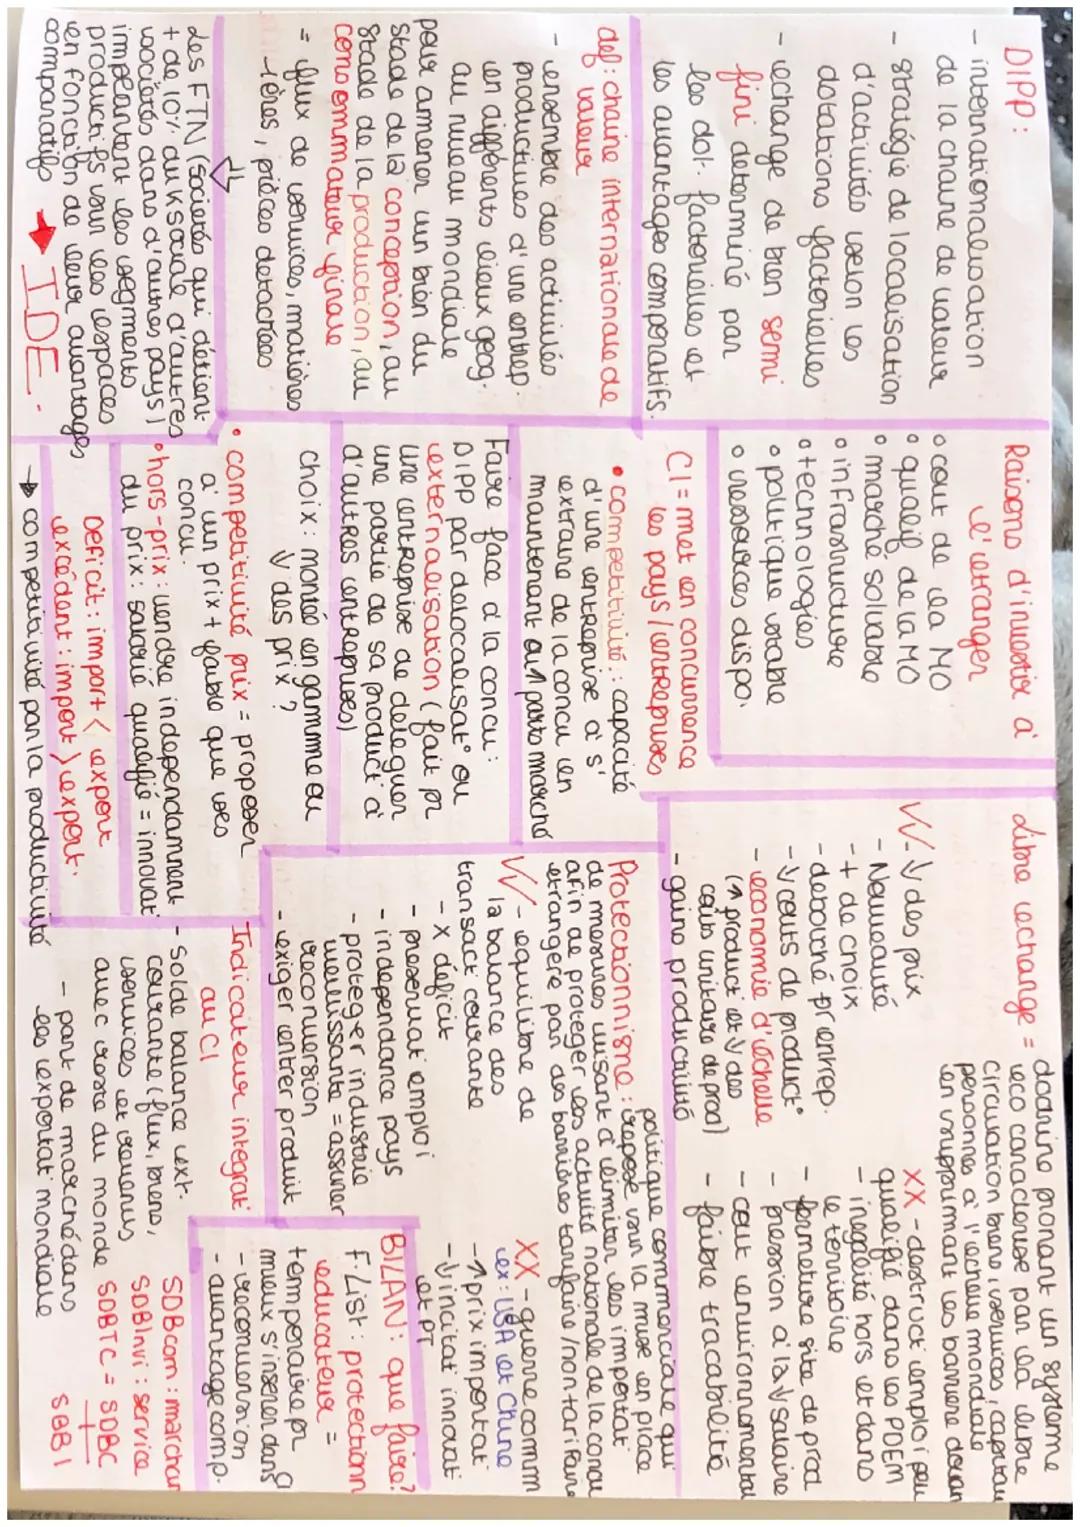 DIPP:
- internationalisation
de la chaine de valeur
- Stratégie de localisation
d'activités selon les
dotations factorielles
- echange de bien semi
fini determiné par
les dot. factorielles et
les avantages comparatifs.
def: chaine internationale de
valeur
- ensemble des activités
productives d'une entrep.
en différents lieux géog.
au niveau mondiale
pour amener un bien du
stade de la conception, au
stade de la production, au
consommateur finale
= flux de services, matières
1ères, pièces detachées
les FTN (societés qui détient
+ de 10% du K social d'autres
sociétés dans d'autres pays)
implantent les segments
productifs vers les espaces
en fonction de leur avantages
comparatifs → IDE.
Raisons d'investir à
l'etranger
o cout de la MO
o qualif de la MO
o marché solvable
o infrastructure
o technologies
o politique stable
o ressources dispo.
CI = met en concurrence
les pays/entreprises
• competitivité: capacité
d'une entreprise à s'
extraire de la concu en
maintenant ou ↑ parts marché
Faire face à la concu:
DIPP par delocalisat° ou
externalisation (fait pr
une entreprise de deleguer
une partie de sa product à
d'autres entreprises)
choix: montée en gamme ou
↓ des prix?
• competitivité prix = proposer
a' un prix + faible que ses
concu.
• hors-prix: vendre independamment
du prix: salarié qualifié = innovat°
Deficit: import < export
excédent: import > export.
→ competitivité par la productivité
Libre echange =
doctrine pronant un systeme
eco caracterisé par la libre
circulation biens, services, capitau
personnes à l'echelle mondiale
en supprimant les barriere douan
VV - ↓ des prix
- Nouveauté
- + de choix
- debouché pr entrep.
- ↓ couts de product°
- economie d'echelle
(↑ product et ↓ des
couts unitaire de prod)
- gains productivité
XX - destruct emploi peu
qualifié dans les PDEM
- inegalité hors et dans
le territoire
- fermeture site de prod
- pression à la ↓ salaire
- cout environnemental
- faible tracabilité
Protectionnisme: politique commerciale qui
repose sur la mise en place
de mesures visant à limiter les importat
afin de proteger les activité nationale de la concu
etrangere par des barrières tarifaire/non tarifaire
VV - equilibre de
la balance des
transact courante
- x deficit
- preservat emploi
- independance pays
- proteger industrie
vieillissante = assurer
reconversion
- exiger entrer produit
XX - guerre comm
ex: USA et Chine
- ↑ prix importat
- ↓ incitat innovat
et PT
BILAN: que faire?
F. List: protectionn
educateur =
temporaire pr
mieux s'inserer dans
- reconversion
- avantage comp.
Indicateur integrat°
au CI
- Solde balance ext.
courante (flux, biens,
services et revenus
avec reste du monde
- part de marché dans
les exportat mondiale
SDBcom: marchan
SDBInvi: service
SDBTC = SDBC
+
SBBI